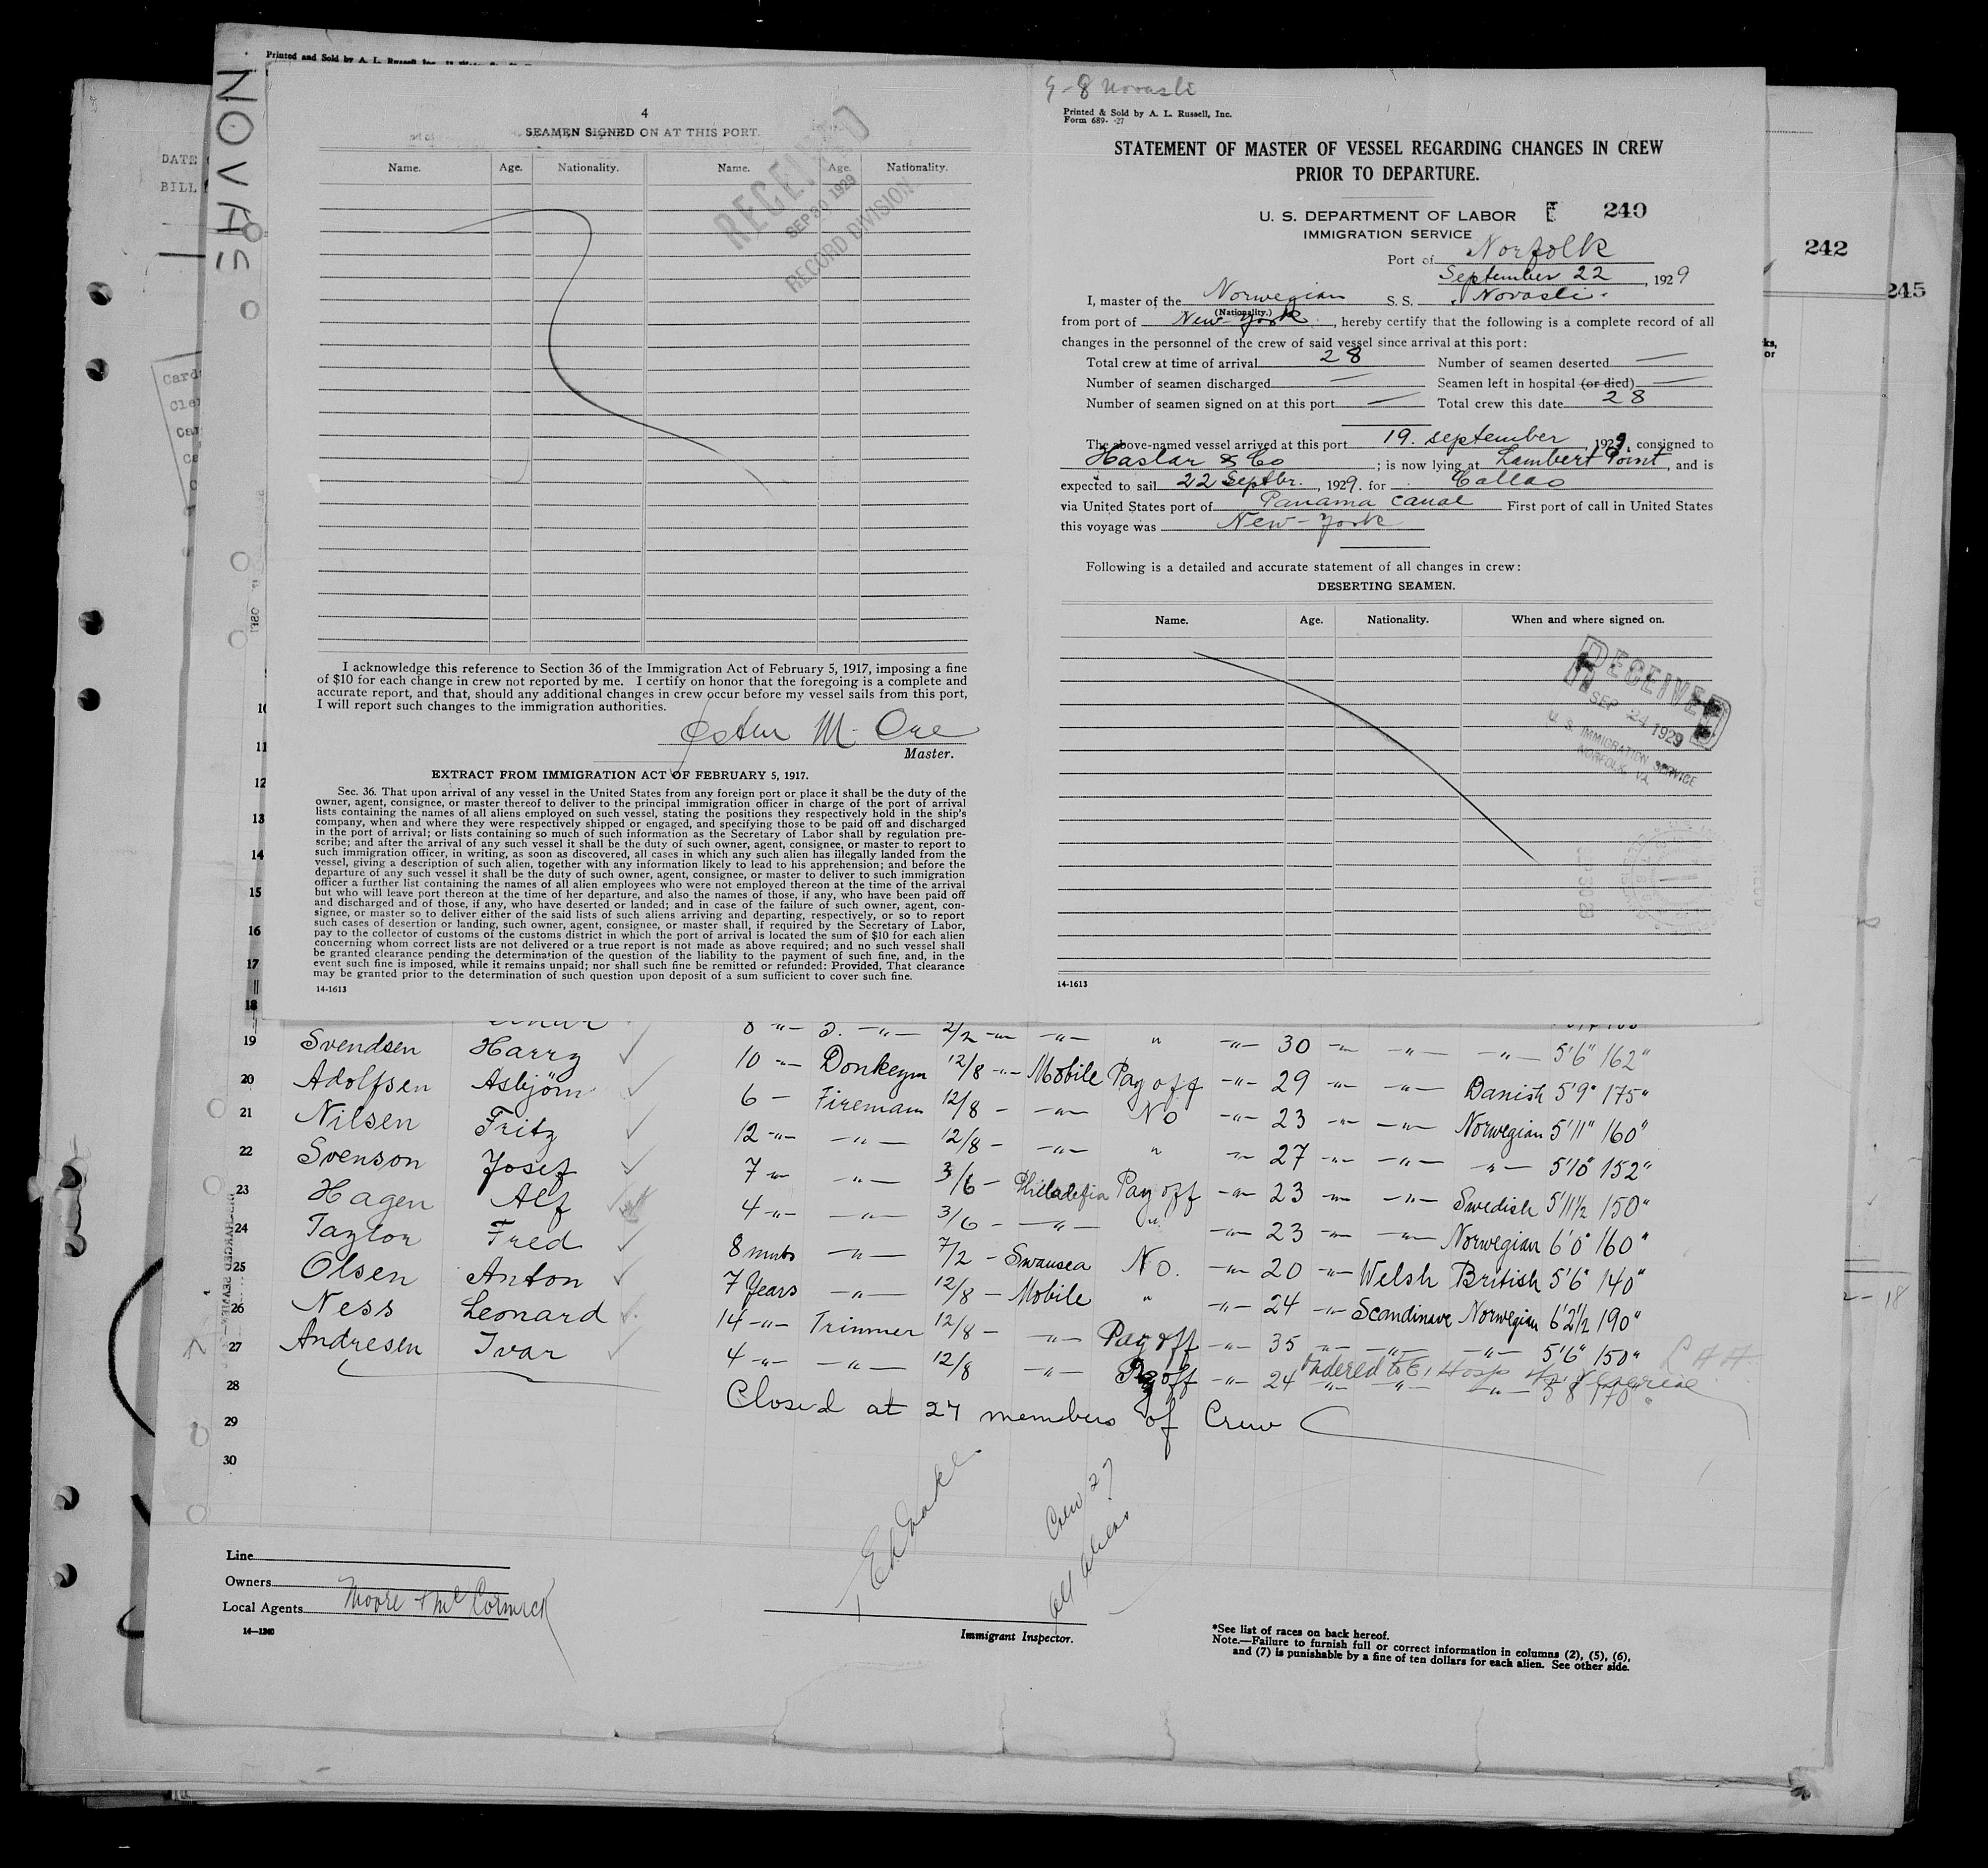 NOVAS
Printed and Sold by A. L. Russell Inc.
DATE
BILL
4
SEAMEN SIGNED ON AT THIS PORT.
Name. Age. Nationality. Name. Age. Nationality.
RECEIVED
SEP 30 1929
RECORD DIVISION
I acknowledge this reference to Section 36 of the Immigration Act of February 5, 1917, imposing a fine
of $10 for each change in crew not reported by me. I certify on honor that the foregoing is a complete and
accurate report, and that, should any additional changes in crew occur before my vessel sails from this port,
I will report such changes to the immigration authorities.
Master.
EXTRACT FROM IMMIGRATION ACT OF FEBRUARY 5, 1917.
Sec. 36. That upon arrival of any vessel in the United States from any foreign port or place it shall be the duty of the
owner, agent, consignee, or master thereof to deliver to the principal immigration officer in charge of the port of arrival
lists containing the names of all aliens employed on such vessel, stating the positions they respectively hold in the ship's
company, when and where they were respectively shipped or engaged, and specifying those to be paid off and discharged
in the port of arrival; or lists containing so much of such information as the Secretary of Labor shall by regulation pre-
scribe; and after the arrival of any such vessel it shall be the duty of such owner, agent, consignee, or master to report to
such immigration officer, in writing, as soon as discovered, all cases in which any such alien has illegally landed from the
vessel, giving a description of such alien, together with any information likely to lead to his apprehension; and before the
departure of any such vessel it shall be the duty of such owner, agent, consignee, or master to deliver to such immigration
officer a further list containing the names of all alien employees who were not employed thereon at the time of the arrival
but who will leave port thereon at the time of her departure, and also the names of those, if any, who have been paid off
and discharged and of those, if any, who have deserted or landed; and in case of the failure of such owner, agent, con-
signee, or master so to deliver either of the said lists of such aliens arriving and departing, respectively, or so to report
such cases of desertion or landing, such owner, agent, consignee, or master shall, if required by the Secretary of Labor,
pay to the collector of customs of the customs district in which the port of arrival is located the sum of $10 for each alien
concerning whom correct lists are not delivered or a true report is not made as above required; and no such vessel shall
be granted clearance pending the determination of the question of the liability to the payment of such fine, and, in the
event such fine is imposed, while it remains unpaid; nor shall such fine be remitted or refunded: Provided, That clearance
may be granted prior to the determination of such question upon deposit of a sum sufficient to cover such fine.
14-1613
9-8 Novasli
Printed & Sold by A. L. Russell, Inc.
Form 689- -27
STATEMENT OF MASTER OF VESSEL REGARDING CHANGES IN CREW
PRIOR TO DEPARTURE.
U. S. DEPARTMENT OF LABOR E 240
IMMIGRATION SERVICE
Port of Norfolk
September 22, 1929
I, master of the Norwegian S. S. "Novasli"
(Nationality.)
from port of New-York, hereby certify that the following is a complete record of all
changes in the personnel of the crew of said vessel since arrival at this port:
Total crew at time of arrival 28 Number of seamen deserted —
Number of seamen discharged — Seamen left in hospital (or died) —
Number of seamen signed on at this port — Total crew this date 28
The above-named vessel arrived at this port 19. september, 1929, consigned to
Haslar & Co; is now lying at Lambert Point, and is
expected to sail 22 Septbr., 1929. for Callao
via United States port of Panama canal First port of call in United States
this voyage was New-York
Following is a detailed and accurate statement of all changes in crew:
DESERTING SEAMEN.
Name. Age. Nationality. When and where signed on.
RECEIVED
SEP 24 1929
U. S. IMMIGRATION SERVICE
NORFOLK, VA.
14-1613
242
245
10
11
12
13
14
15
16
17
18
19 Svendsen Harry 10 -"- Donkeym 12/8 -"- Mobile Pay off -"- 29 -"- -"- Danish 5'9" 175"
20 Adolfsen Asbjörn 6 - Fireman 12/8 - -"- No -"- 23 -"- -"- Norwegian 5'11" 160"
21 Nilsen Fritz 12 -"- -"- 12/8 - -"- " -"- 27 -"- -"- -"- 5'10" 152"
22 Svenson Josef 7 -"- -"- 3/6 - Philadelfia Pay off -"- 23 -"- -"- Swedish 5'11½ 150"
23 Hagen Alf 4 -"- -"- 3/6 - -"- " -"- 23 -"- -"- Norwegian 6'0" 160"
24 Taylor Fred 8 mnts -"- 7/2 - Swansea No. -"- 20 -"- Welsh British 5'6" 140"
25 Olsen Anton 7 Years -"- 12/8 - Mobile " -"- 24 -"- Scandinave Norwegian 6'2½ 190"
26 Ness Leonard 14 -"- Trimmer 12/8 - -"- Pay off -"- 35 -"- -"- -"- 5'6" 150"
27 Andresen Ivar 4 -"- -"- 12/8 -"- Pay off -"- 24 -"- -"- -"- 5'8" 170"
28
29 Closed at 27 members of Crew
30
Crew 27
all aliens
Line
Owners
Local Agents Moore & McCormick
14—1240
Immigrant Inspector.
*See list of races on back hereof.
Note.—Failure to furnish full or correct information in columns (2), (5), (6),
and (7) is punishable by a fine of ten dollars for each alien. See other side.